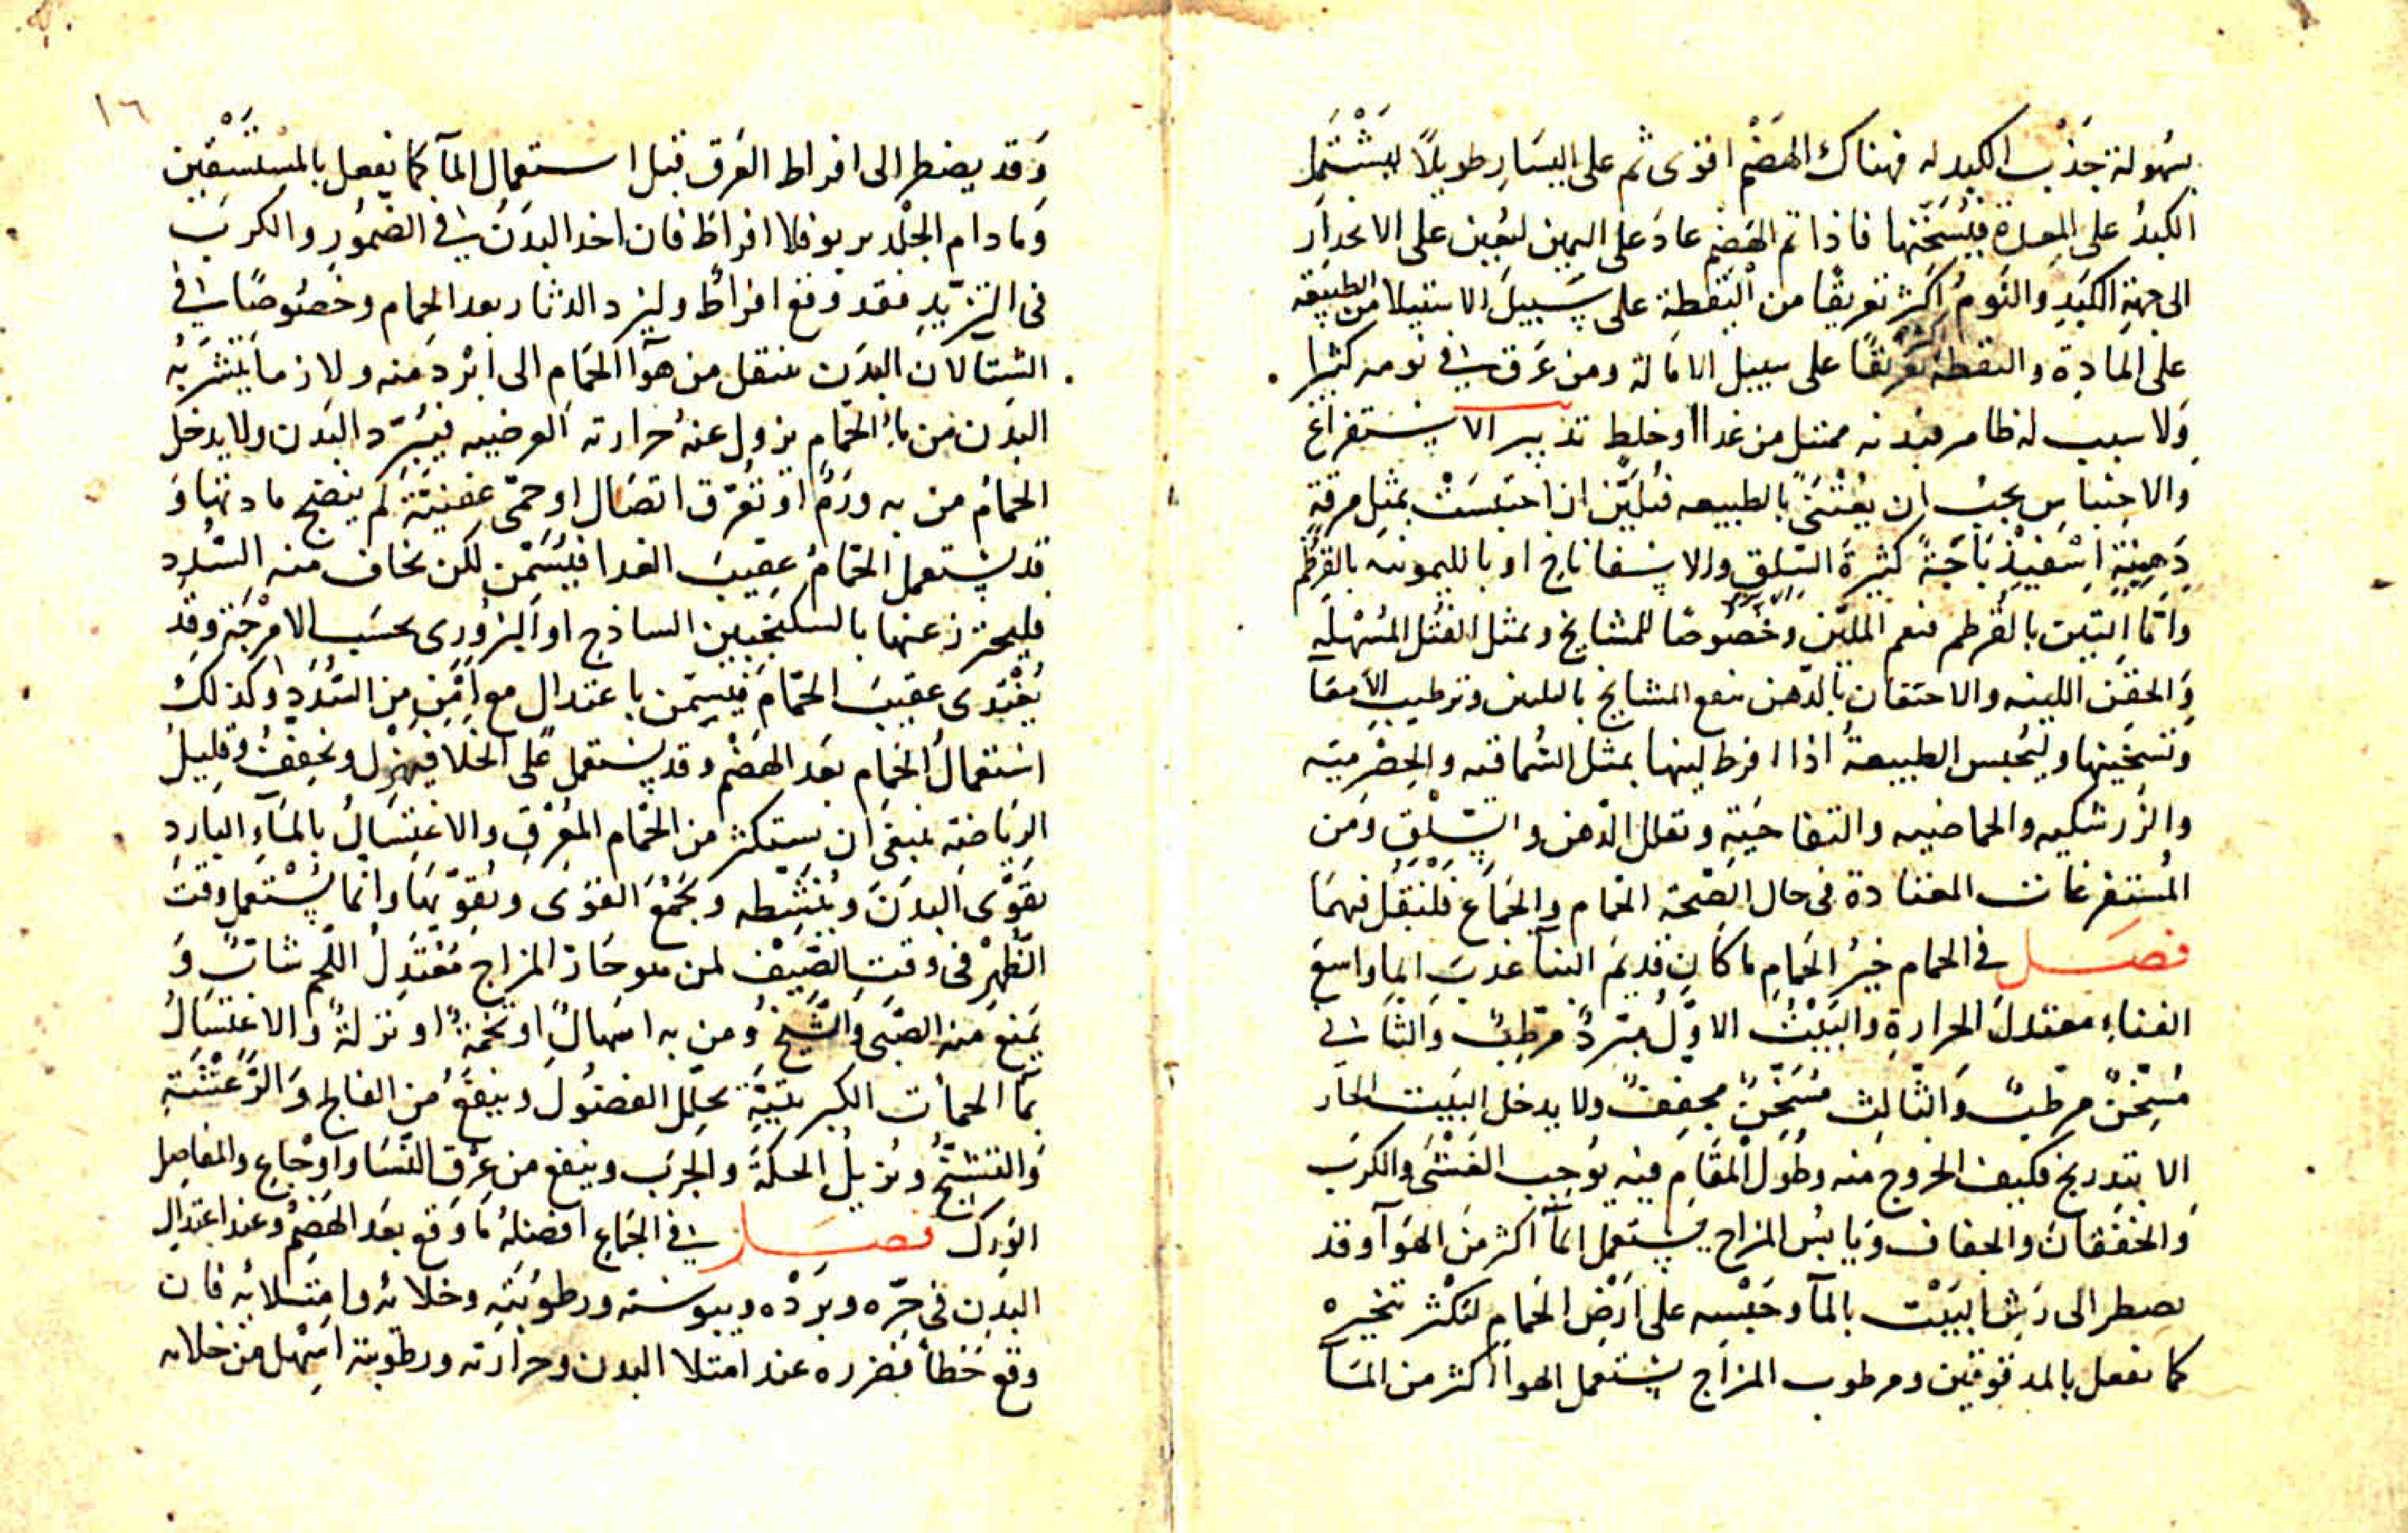 بسهولة جَذْب الكبد له فهناك الهَضْم اقوى ثم على اليسَار طويلاً ليَشْتَمل
الكبدُ على المِعدة فيُسَخّنها فاذا تم الهَضم عادَ على اليمين ليُعين على الانحدَار
الى جهةِ الكَبَدِ والنومُ اكثر تعريقًا من اليَقظة على سَبيلَ الاستيلا من الطبيعَة
على المادِة واليقظة اكثر تعريقًا على سبيل الامالة ومن عَرق في نومه كثيرا
ولا سبب له ظاهر فبدنه ممتلى من غدا أو خلط تدبير الاستفراغ
والاحتباس يجبُ ان يُعْتَنَى بالطبيعه فتُليَّن ان احتبسَتْ بمثل مرقةٍ
دَهِنيةٍ اسْفيذْبَاجَةً كثيرةَ السّلقِ والاسفاناخ او بالليمونيه بالقرطم
وامّا التين بالقُرطم فنعم الملّين وخصُوصًا للمشايخ وبمثل الفُتل المسْهله
وَالحقَن اللينه والاحتقان بالدّهن ينفع المشايخ بالتلين وترطيب الامعَا
وَتسخينها وليُحبس الطبيعةُ اذا افرط لينها بمثل السُّماقيه والحِصْرميَه
والزَرشكيه والحماضيه والتفاحيَةِ وتقلل الدّهن والسّلق وَمن
المُستفرغات المعتادة فى حال الصّحة الحمّام والجَماع فلْنَقُل فيهمَا
فصَــل في الحمام خيرُ الحمَام ما كان قديمَ البنآ عذبَ الما واسعَ
الفناءِ معتدلَ الحرارةِ والبَيْتُ الاوّل مبَرِّدٌ مرّطِبٌ وَالثاني
مُسَخّنٌ مرطّبٌ وَالثّالث مُسَخّنٌ مجفِفٌ ولا يدخل البيت الحَار
الا بتدريج فكيف الخروج منه وطُول الْمقَام فيه يُوجب الغَشْىَ والكرَب
وَالخفقانَ والجفاف وَيَابسُ المزاج يستعمل المآ اكثر منَ الهوَآ وقد
يضطر الى رَش البَيْت بالمآ وحَبْسِه على ارَضْ الحَمام لتكثر تبخيره
كما يفعل بالمدقوقين ومرطوب المزاج يستعمل الهوا اكثر من المآ
١٦
وَقد يضطر الى افراط العَرق قبل استعمال المآ كما يفعل بالمسْتَسْقين
وَمادام الجْلد يربو فلا افراط فان اخد البدَنَ في الضّموُرِ والكرب
فى التزيّدِ فقد وقع افراطٌ وليزد الدثار بعد الحمام وخصُوصًا في
الشتا لان البدَن ينتقل من هوآ الحَمّام الى ابْردَ منه ولان ما يتشَرّبُه
البدَن من مآءِ الحَمّام يزول عنه حَرارته العرضيه فيُبرّد البَدن ولا يدخل
الحمّامُ من به ورَمٌ اوَ تفُرّق اتصَال او حمّى عفِنيّةَ لم ينضج مادتها وَ
قد يستعمل الحمّامُ عقيبَ الغدا فيُسَمّن لكن يخاف منه السّدد
فليحترز عنها بالسكنجبين الساذج او البُزوُرى بحسَب الامزجَة وقد
يُغْتدَى عقيبَ الحَمّام فيسَمّن باعتدال مع امنٍ من السّدد وكذلك
اسْتعمالُ الحَمّام بعَد الهضم وقد يستعمل على الخلا فيهزل ويجفف وقليلُ
الريَاضةِ ينبغى ان يستكثر من الحَمّام المُعرّق والاغتسَالُ بالمآءِ البارد
يقوّى البدَنَ ويُنَشّطه وَيَجْمُعُ القوَى ويُقوّيهَا وانما يُسْتعمَل وقتَ
الظُهرْ فى وقتِ الصّيف لمن هو حَار المزاج مُعْتدلُ اللّحم شابٌ وَ
يمنعَ منه الصَبّى والشَّيخُ وَمن به اسهالٌ اوَ تُخمَةٌ او نزلةٌ والاغتسالُ
بمآ الحمآت الكبريتيّةَ يحلّل الفضُولَ وينفعُ من الفالج وَالرَّعْشَة
وَالتشنّجُ ويُزيلُ الحكةَ والجَرب وينفع من عِرْق النّسَا وَاوْجَاع والمفاصِل
الورك فصَــل في الجَماع افضلهُ مَا وَقع بعَد الهَضمُ وَعند اعتدالِ
البدَن فى حَرّه وبرَدْه ويبُوسَته ورطُوبَتِه وخلائه وامتلائه فان
وقع خَطأ فضرره عند امتلا البدن وحرارته ورطوبته اسْهل من خلائه